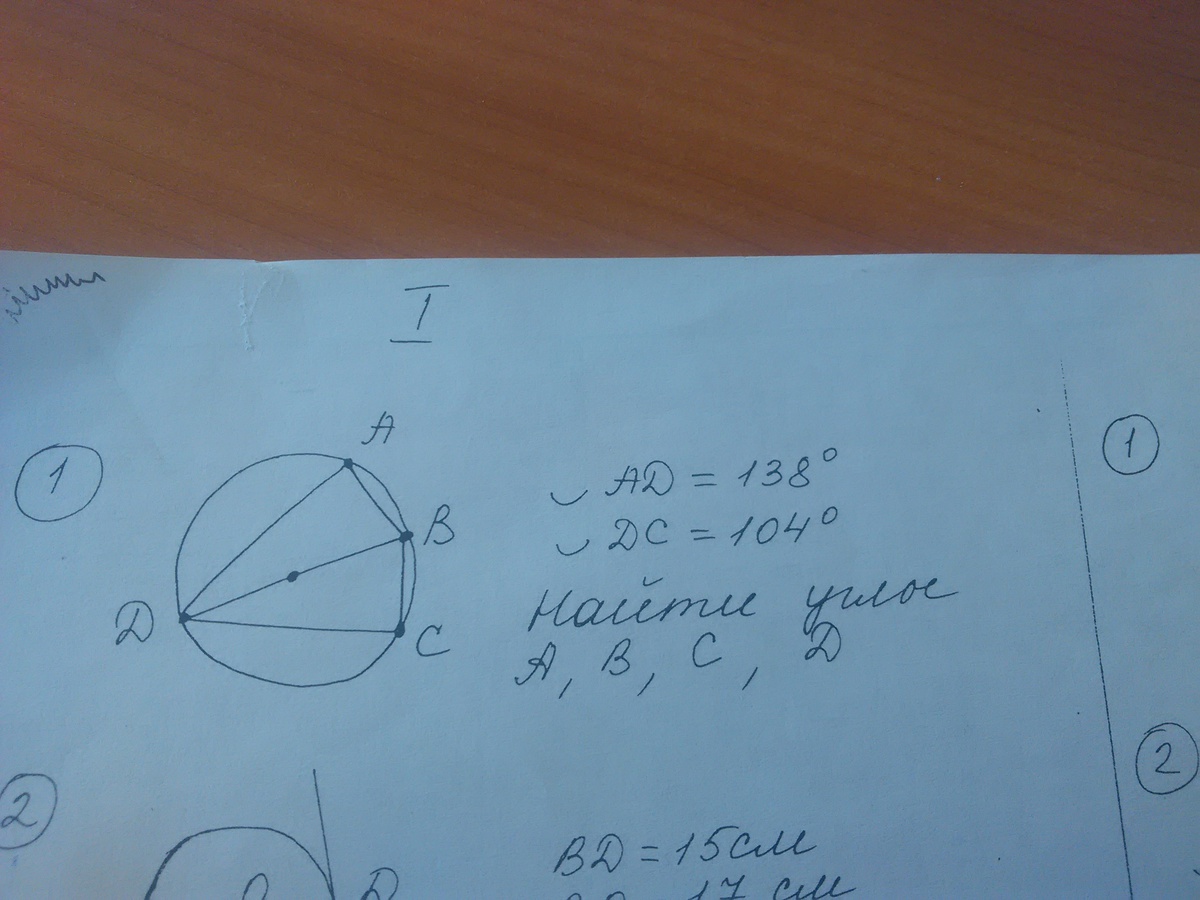 I
1
A
B
D
C
◡ AD = 138°
◡ DC = 104°
Найти углы
A, B, C, D
1
2
2
BD = 15 см
17 см
D